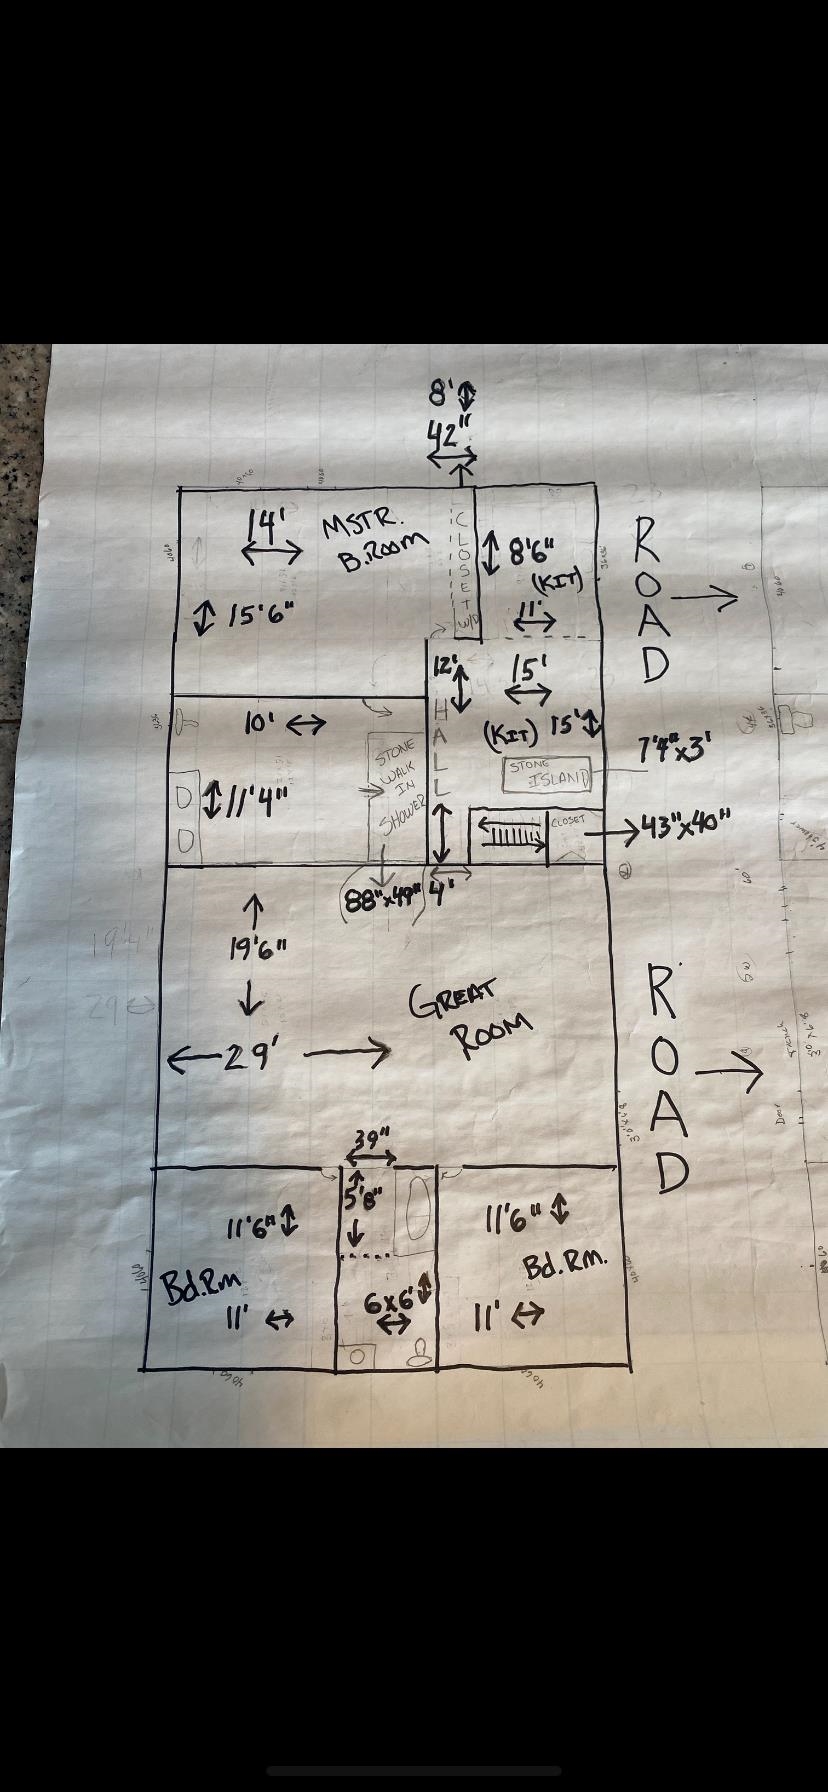 8'
42"
14'
MSTR.
B.ROOM
CLOSET
W/D
8'6"
(KIT)
11'
15'6"
ROAD
12'
15'
HALL
(KIT) 15'
10'
STONE
WALK
IN
SHOWER
11'4"
STONE
ISLAND
7'4"x3'
CLOSET
43"x40"
88"x49"
4'
19'4"
19'6"
29
GREAT
ROOM
29'
ROAD
39"
5'8"
11'6"
Bd.Rm
11'
6x6'
11'6"
Bd.Rm.
11'
4060
4060
4060
4060
Door
3'0"x6'8"